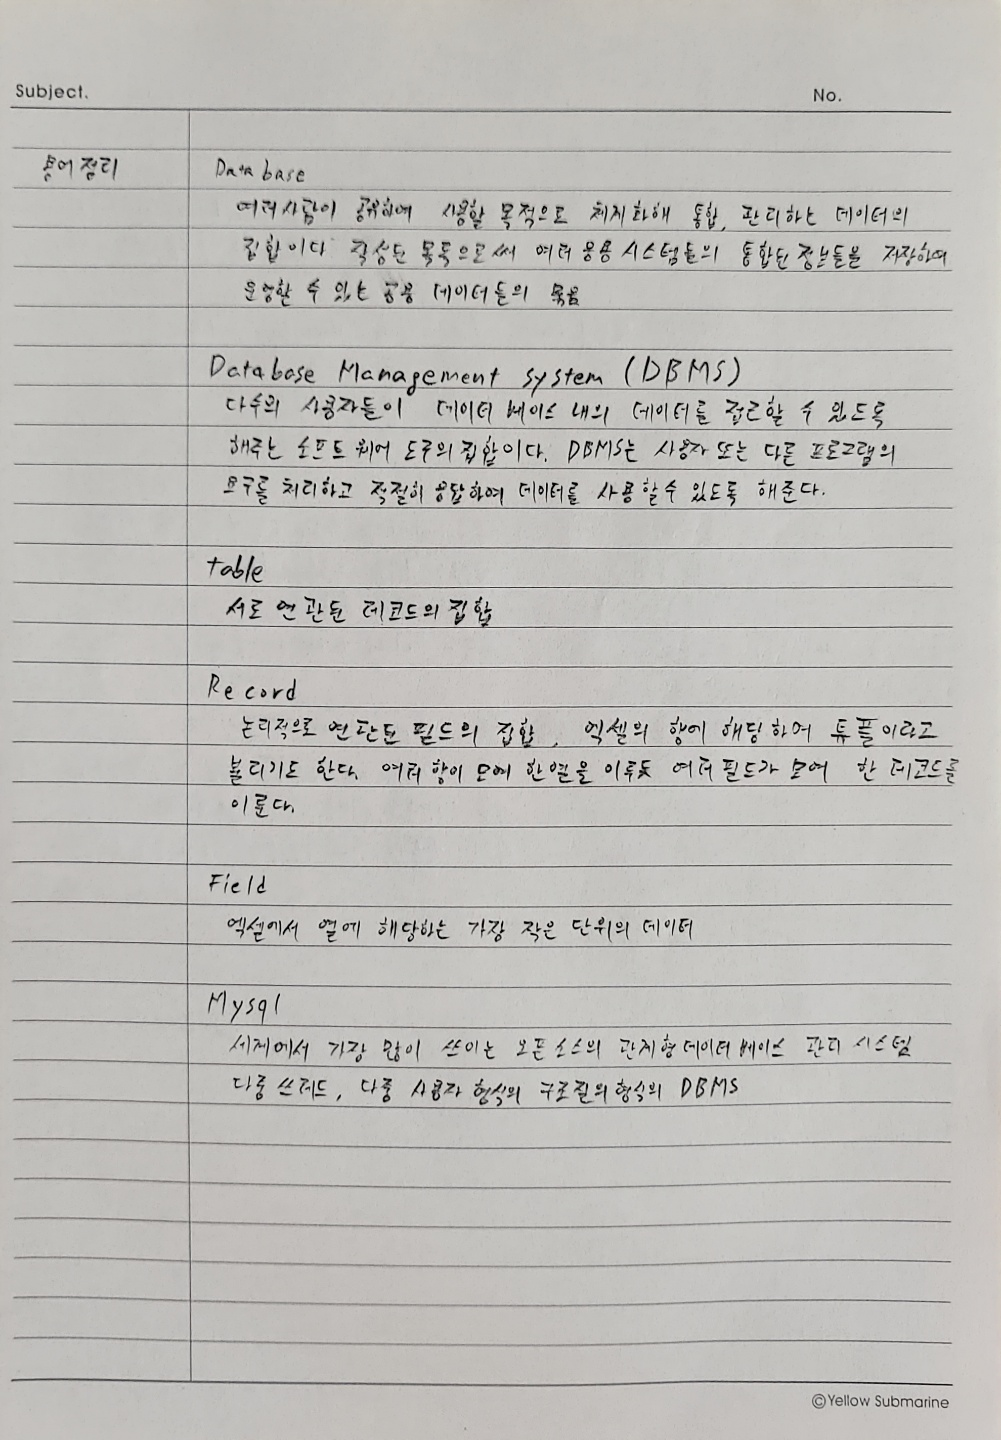 Subject.
No.
용어정리
Database
여러사람이 공유하여 사용할 목적으로 체계화해 통합, 관리하는 데이터의
집합이다 작성된 목록으로써 여러 응용시스템들의 통합된 정보들을 저장하여
운영할 수 있는 공용 데이터들의 묶음
Database Management system (DBMS)
다수의 사용자들이 데이터 베이스 내의 데이터를 접근할 수 있도록
해주는 소프트웨어 도구의 집합이다. DBMS는 사용자 또는 다른 프로그램의
요구를 처리하고 적절히 응답하여 데이터를 사용할수 있도록 해준다.
table
서로 연관된 레코드의 집합
Record
논리적으로 연관된 필드의 집합, 엑셀의 행에 해당하며 튜플이라고
불리기도 한다. 여러 행이 모여 한 열을 이루듯 여러 필드가 모여 한 레코드를
이룬다.
Field
엑셀에서 열에 해당하는 가장 작은 단위의 데이터
Mysql
세계에서 가장 많이 쓰이는 오픈소스의 관계형 데이터 베이스 관리 시스템
다중 쓰레드, 다중 사용자 형식의 구조질의형식의 DBMS
©Yellow Submarine